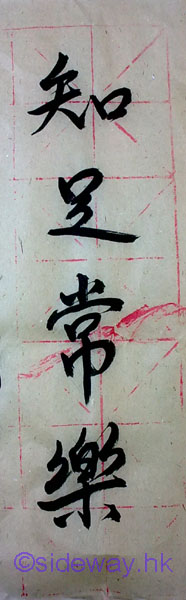 知足常樂
©sideway.hk